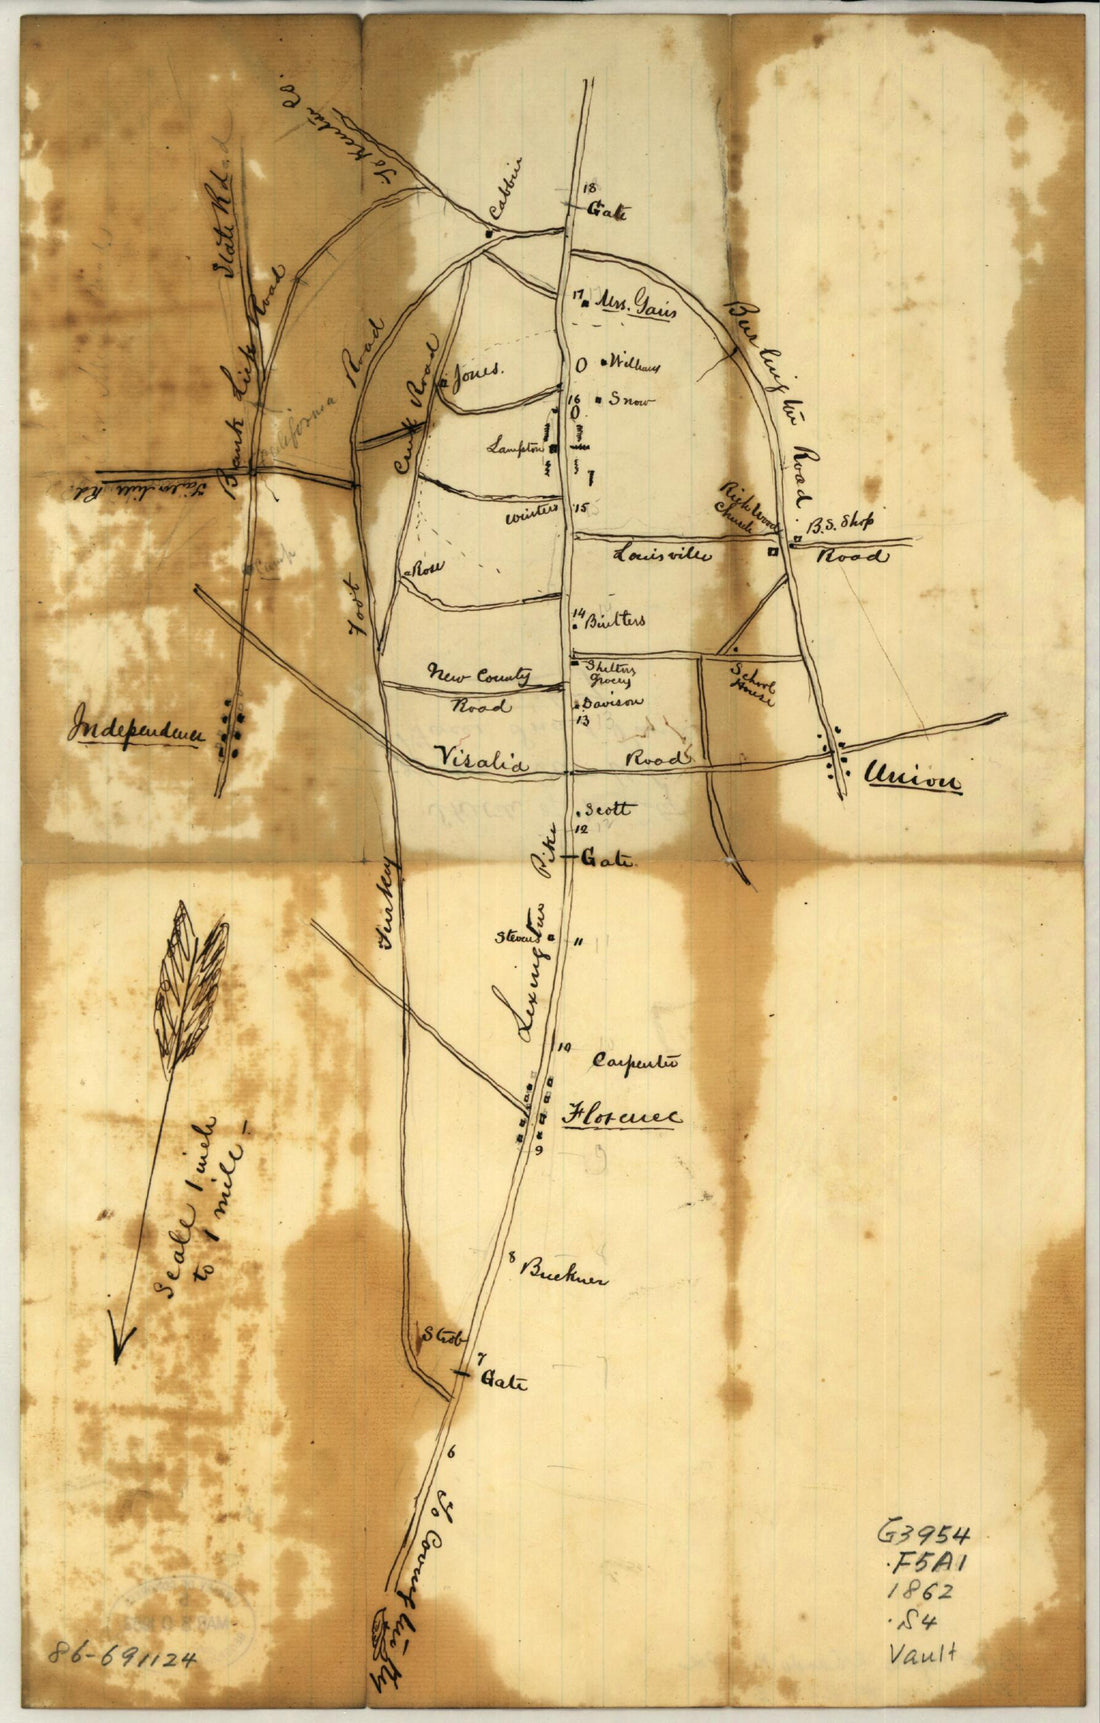 To Kenton Co.
State Rd
Cabbin
18
Gate
Bank Lick Road
17
Mrs. Gains
Burlington Road
Road
Cruk Road
Jones.
O
Williams
16
Snow
O
California
Lampton
Winters
15
Rich Wood
Church
B.S. Shop
Louisville
Road
Camp
Rose
Foot
14
Butters
New County
Road
Grocery
School
House
Davison
13
Independence
Visalia
Road
Union
Scott
12
Gate
Lexington Pike
Turkey
Stevens
11
10
Carpenter
Florence
9
Scale 1 inch
to 1 mile -
8
Buckner
Strob
7
Gate
6
To Covington
Ky
G3954
.F5A1
1862
.S4
Vault
86-691124